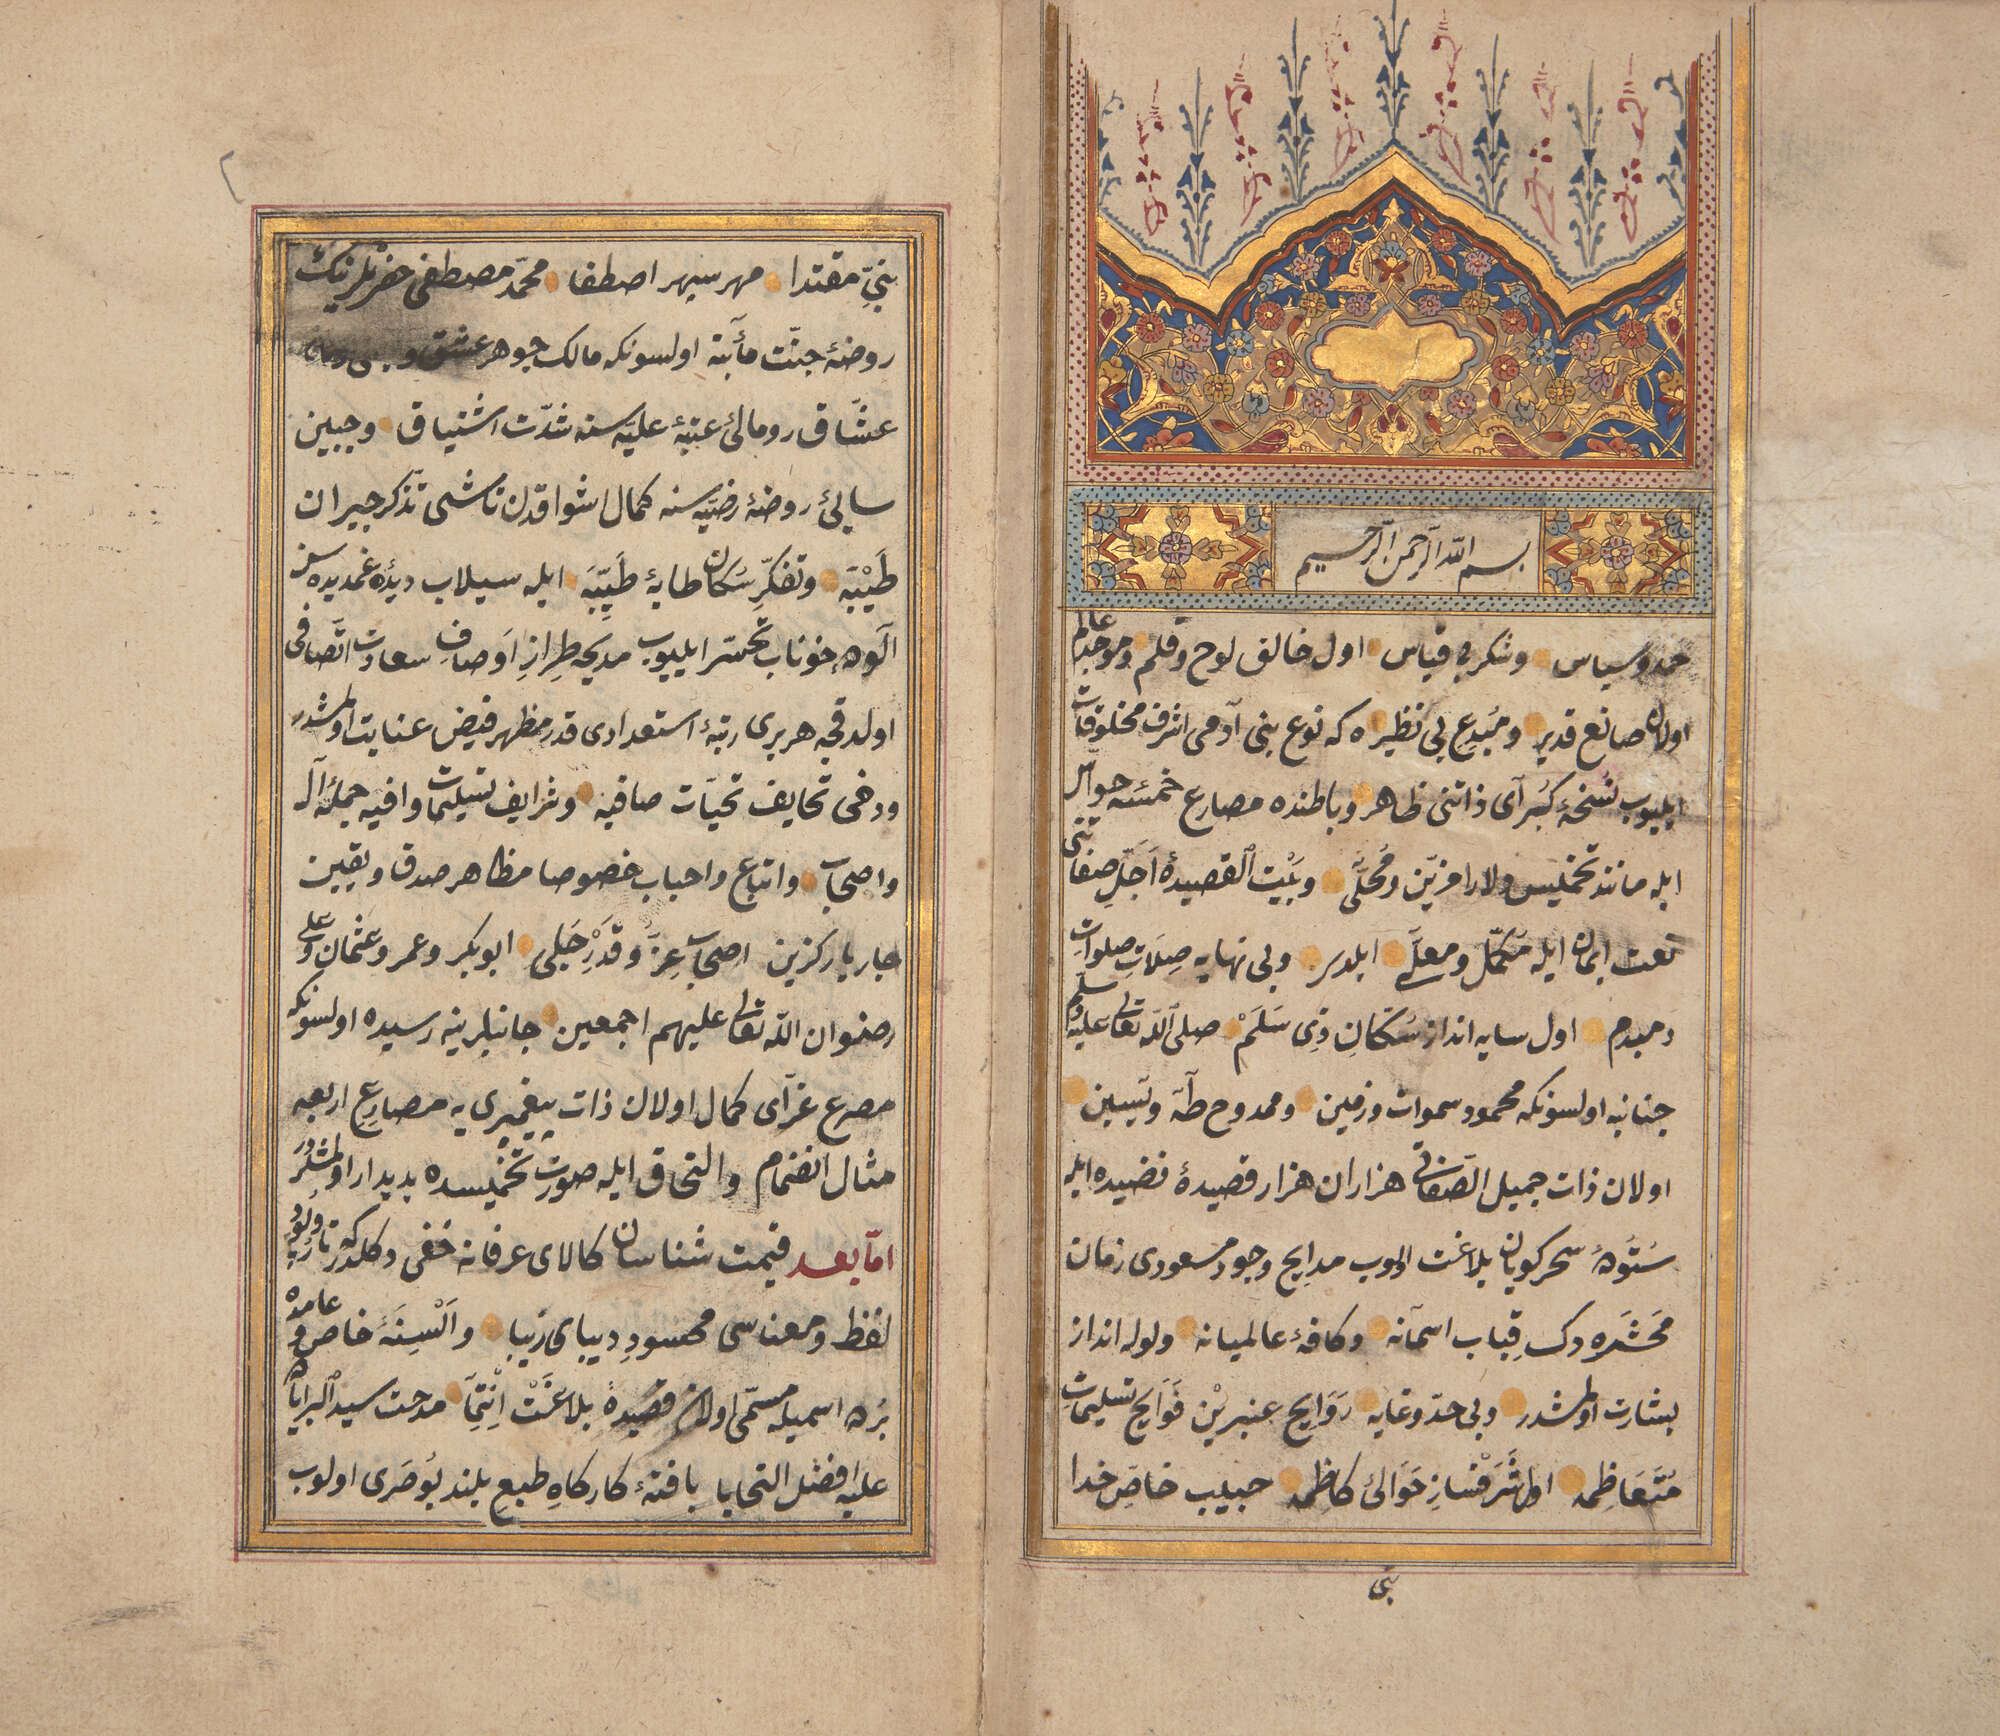 بسم الله الرحمن الرحيم
حمد و سپاس و شكر بی قیاس اول خالق لوح و قلم و موجد عالم
اولان صانع قدیر و مُبدِع بی نظیره كه نوع بنی آدمی اشرف مخلوقات
ایلیوب نسخهٔ كُبرآی ذاتنی ظاهر و باطنده مصارع خمسهٔ حواسّ
ایله مانند تخمیس دلارا مزیّن و مُحلَّی و بَیْت القصیدهٔ اَجَلِّ صفاتنی
نعت ایمان ایله مكمّل و معلّی ایلدی و بی نهایه صِلَاتِ صلوات
دمبدم اول سایه انداز سُكّانِ ذِی سَلَمْ صلی الله تعالی علیه وسلم
جنابنه اولسونكه محمود سموات و زمین و ممدوح طٰهٰ و یٰسین
اولان ذات جمیل الصّفاتی هزاران هزار قصیدهٔ نضیده ایله
سُتُودهٔ سحركویان بلاغت اولوب مدایح وجود مسعودی زمان
مَحشَره دك قِباب اسمآنه و كافهٔ عالمیانه ولوله انداز
بشارت اولمشدر و بی حدّ و غایه رَوَایح عنبرین فَوَایح تسلیمات
مُتَعَاظِمه اول شَرَفْساز حَوَالیٔ كاظمه حبیب خاصِ خدا
نبی
نبیِّ مقتدا مهر سپهر اصطفا محمّد مصطفی حضرتلرینك
روضهٔ جنّت مأبنه اولسونكه مالك جوهر عشق و
عشّاق رومالیٔ عتبهٔ علیّه سنه شدّت اشتیاق و جبین
سایٔ روضهٔ رضیّه سنه كمال اشواقدن ناشی تذكر جیران
طَیْبَه و تفكّرِ سُكان طابهٔ طَیِّبَه ایله سیلاب دیدهٔ غمدیده سن
آلودهٔ خوناب تحسّر ایلیوب مدیحه طِرازِ اَوصافِ سعادت اتّصافی
اولدقجه هربری رتبهٔ استعدادی قدر مظهر فیض عنایت اولمشدر
و دخی تحایف تحیّات صافیه و شرایف تسلیمات وافیه جملهٔ آل
و اصحاب و اتباع و احباب خصوصا مظاهر صدق و یقین
جاریار كزین اصحابِ عزّ و قَدْرِ جَلی ابوبكر و عمر و عثمان و علی
رضوان الله تعالی علیهم اجمعین جانبلرینه رسیده اولسونكه
مصرع غرّآی كمال اولان ذات پیغمبری یه مصارِعِ اربعه
مثال انضمام و التحاق ایله صورت تخمیسده پدیدار اولمشلردر
امّا بعد قیمت شناسان كالای عرفانه خفی دكلدركه تار و پود
لفظ و معناسی محسودِ دیبای زیبا و اَلْسِنَهٔ خاص و عامده
بُرده اسمیله مسمّی اولان قصیدهٔ بلاغَتْ اِنْتِمَآ مدحت سید البرایا
علیه افضل التحایا بافتهٔ كاركاهِ طبع بلند بُوصَری اولوب